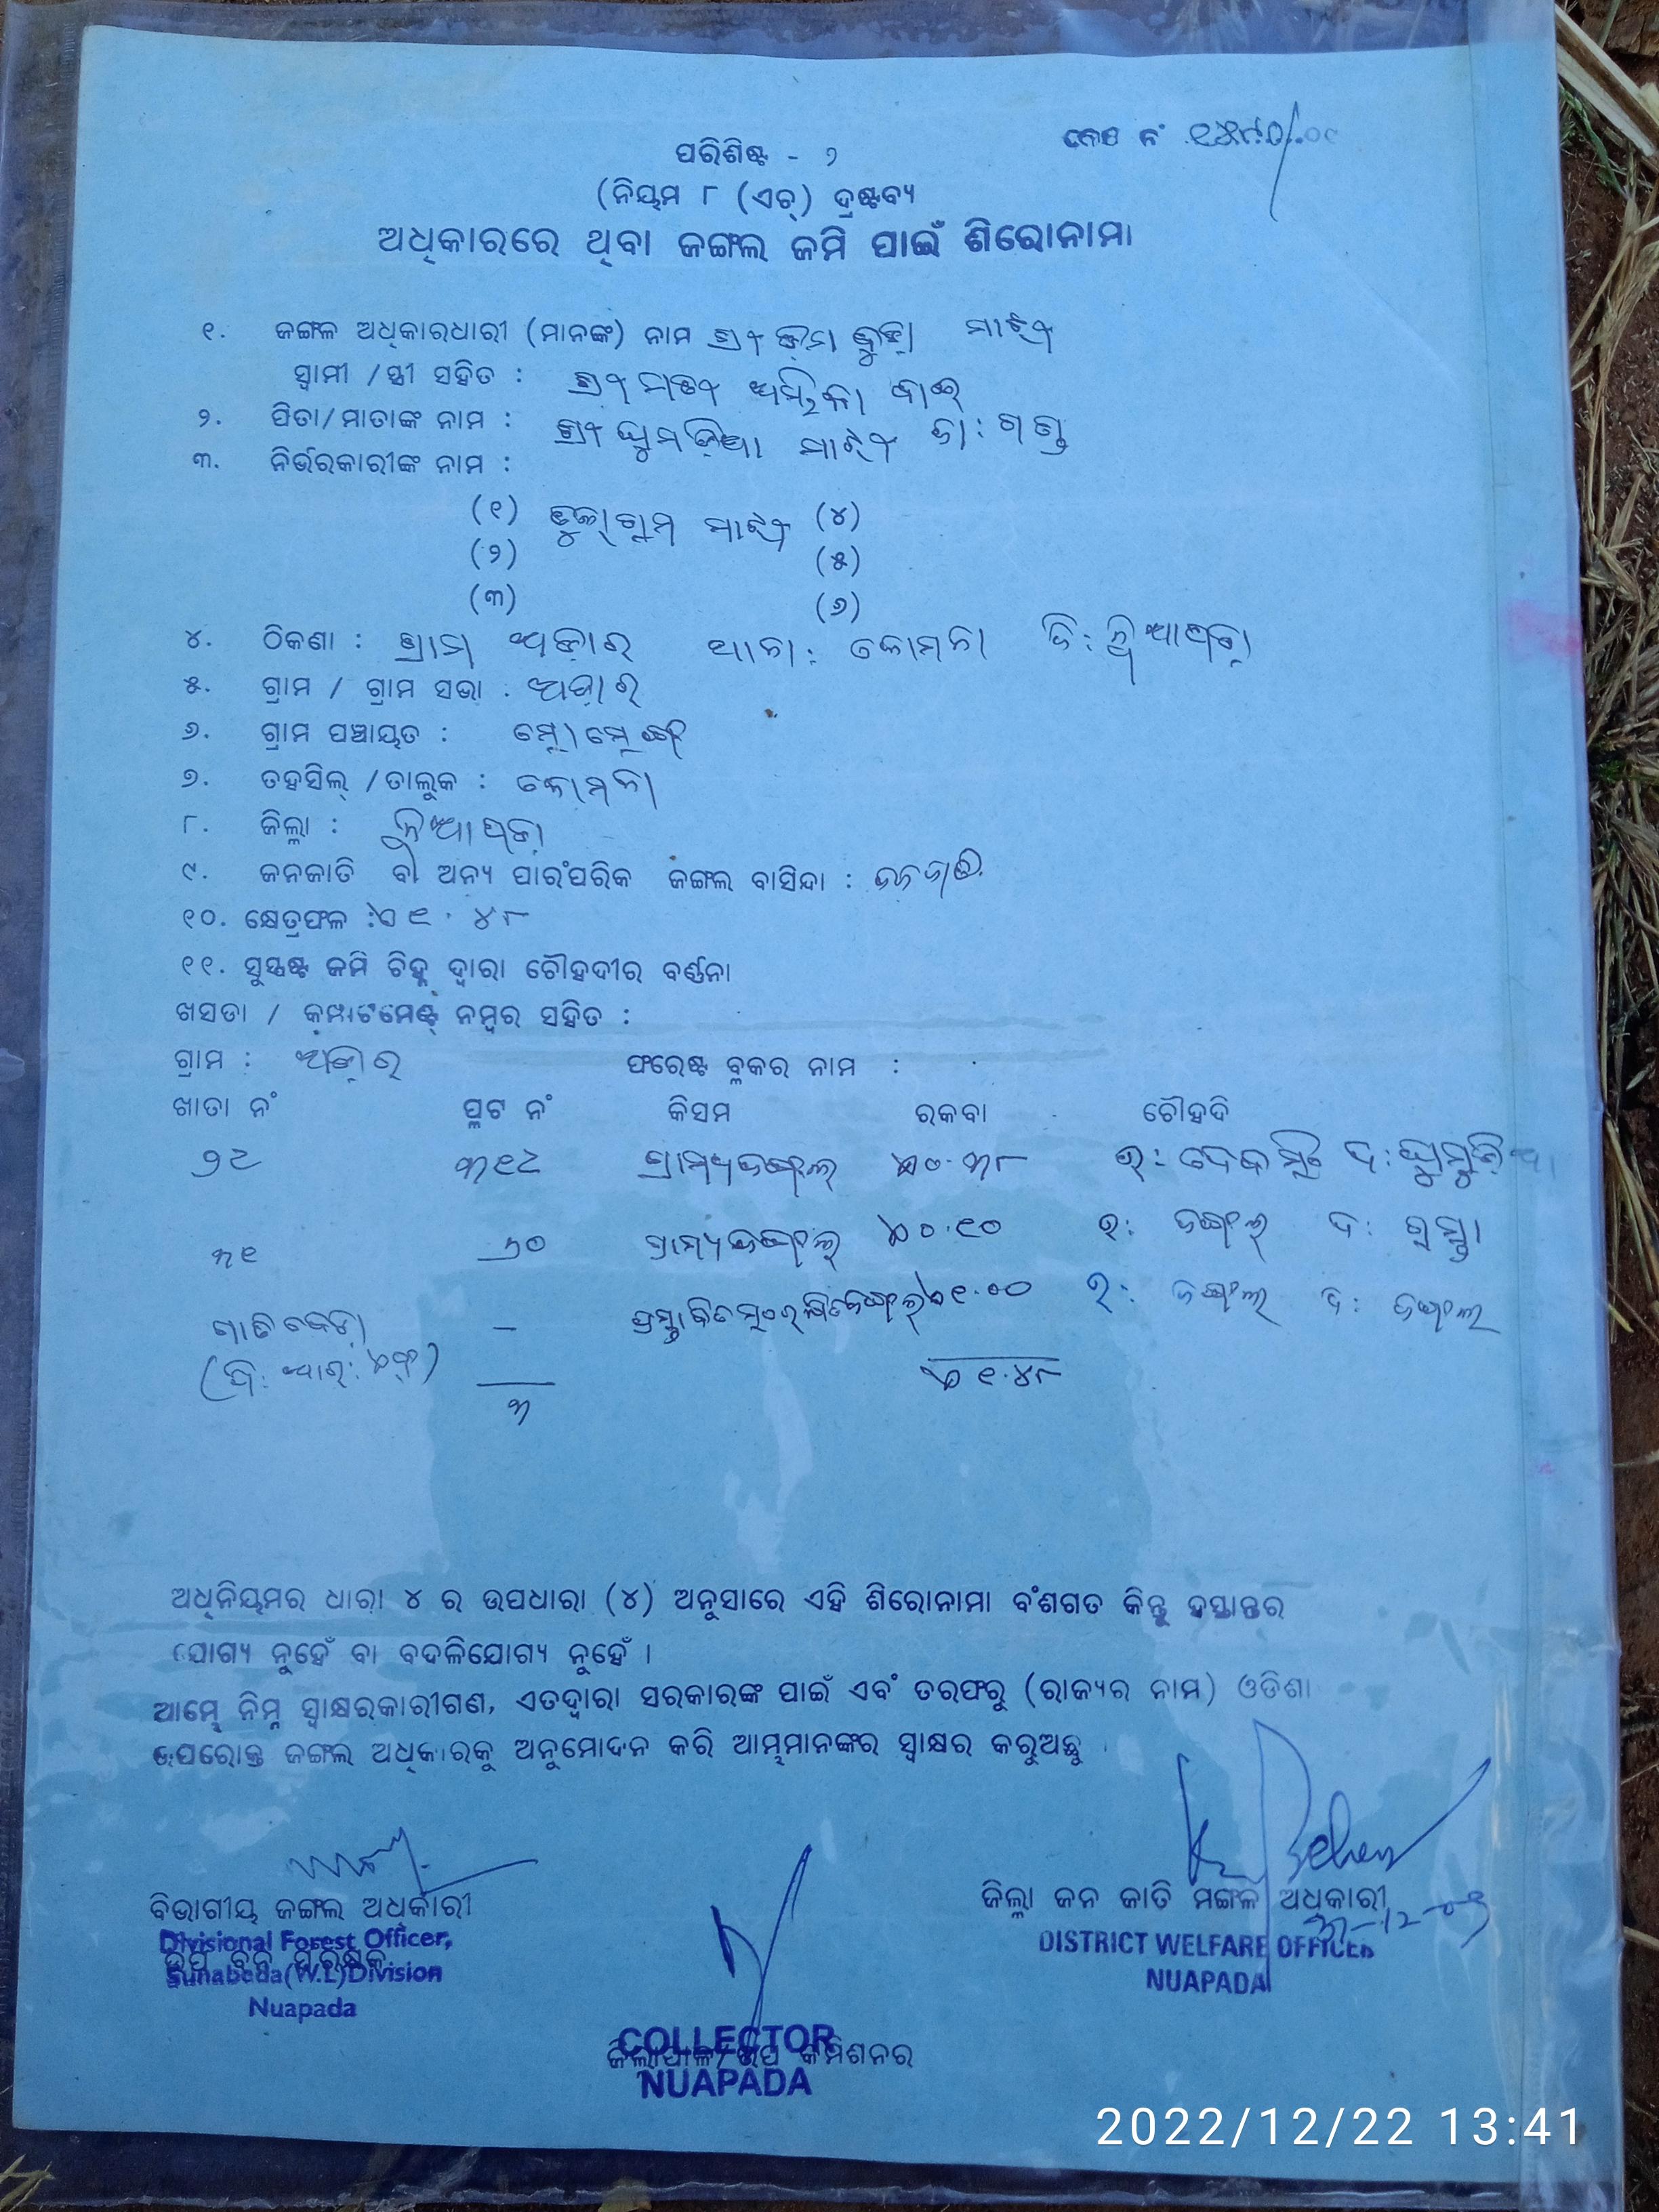 ପରିଶିଷ୍ଟ - ୨
କେସ ନଂ
(ନିୟମ ୮ (ଏଚ୍) ଦ୍ରଷ୍ଟବ୍ୟ
ଅଧିକାରରେ ଥିବା ଜଙ୍ଗଲ ଜମି ପାଇଁ ଶିରୋନାମା
୧. ଜଙ୍ଗଳ ଅଧିକାରଧାରୀ (ମାନଙ୍କ) ନାମ ମାଝୀ
ସ୍ୱାମୀ / ସ୍ତ୍ରୀ ସହିତ : ଶ୍ରୀମତୀ ଅମ୍ବିକା ବାଇ
୨. ପିତା/ମାତାଙ୍କ ନାମ : ଶ୍ରୀ ମାଝୀ ଜା: ଗଣ୍ଡ
୩. ନିର୍ଭରକାରୀଙ୍କ ନାମ :
(୧) ମାଝୀ (୪)
(୨) (୫)
(୩) (୬)
୪. ଠିକଣା : ଗ୍ରାମ ଥାନା: କୋମନା ଜି: ନୂଆପଡ଼ା
୫. ଗ୍ରାମ / ଗ୍ରାମ ସଭା :
୬. ଗ୍ରାମ ପଞ୍ଚାୟତ :
୭. ତହସିଲ୍ /ତାଲୁକ : କୋମନା
୮. ଜିଲ୍ଲା : ନୂଆପଡ଼ା
୯. ଜନଜାତି ବା ଅନ୍ୟ ପାରଂପରିକ ଜଙ୍ଗଲ ବାସିନ୍ଦା : ଜନଜାତି
୧୦. କ୍ଷେତ୍ରଫଳ : ଏ ୧.୪୮
୧୧. ସୁସ୍ପଷ୍ଟ ଜମି ଚିହ୍ନ ଦ୍ୱାରା ଚୌହଦୀର ବର୍ଣ୍ଣନା
ଖସଡା / କମ୍ପାଟମେଣ୍ଟ୍ ନମ୍ବର ସହିତ :
ଗ୍ରାମ : ଫରେଷ୍ଟ ବ୍ଲକର ନାମ :
ଖାତା ନଂ ପ୍ଲଟ ନଂ କିସମ ରକବା ଚୌହଦି
୩୧୨ ଗ୍ରାମ୍ୟଜଙ୍ଗଲ ଏ୦.୩୮ ଉ: ଦ:
୩୧ ଗ୍ରାମ୍ୟଜଙ୍ଗଲ ଏ୦.୧୦ ଉ: ଜଙ୍ଗଲ ଦ: ରାସ୍ତା
— ପ୍ରସ୍ତାବିତ ସଂରକ୍ଷିତ ଜଙ୍ଗଲ ଏ୧.୦୦ ଉ: ଜଙ୍ଗଲ ଦ: ଜଙ୍ଗଲ
(ପି: ଆର: ଏଫ୍) ୩ ଏ ୧.୪୮
ଅଧିନିୟମର ଧାରା ୪ ର ଉପଧାରା (୪) ଅନୁସାରେ ଏହି ଶିରୋନାମା ବଂଶଗତ କିନ୍ତୁ ହସ୍ତାନ୍ତର
ଯୋଗ୍ୟ ନୁହେଁ ବା ବଦଳିଯୋଗ୍ୟ ନୁହେଁ ।
ଆମ୍ଭେ ନିମ୍ନ ସ୍ୱାକ୍ଷରକାରୀଗଣ, ଏତଦ୍ୱାରା ସରକାରଙ୍କ ପାଇଁ ଏବଂ ତରଫରୁ (ରାଜ୍ୟର ନାମ) ଓଡିଶା
ଉପରୋକ୍ତ ଜଙ୍ଗଲ ଅଧିକାରକୁ ଅନୁମୋଦନ କରି ଆମ୍ଭମାନଙ୍କର ସ୍ୱାକ୍ଷର କରୁଅଛୁ ।
ବିଭାଗୀୟ ଜଙ୍ଗଲ ଅଧିକାରୀ
Divisional Forest Officer,
Sunabeda(W.L)Division
Nuapada
ଜିଲ୍ଲା ଜନ ଜାତି ମଙ୍ଗଳ ଅଧିକାରୀ
DISTRICT WELFARE OFFICER
NUAPADA
COLLECTOR
ଜିଲ୍ଲାପାଳ/ଉପ କମିଶନର
NUAPADA
2022/12/22 13:41